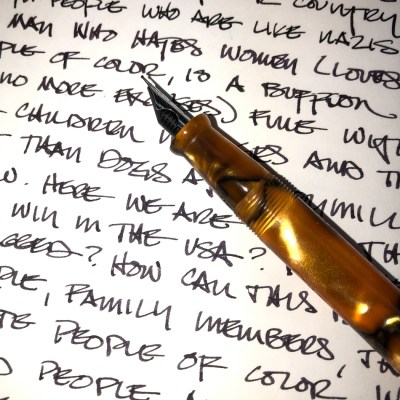 PEOPLE WHO ARE LIKE NAZIS
MAN WHO HATES WOMEN (LOVES
PLE OF COLOR, IS A BUFFOON
NO MORE EXCUSES) FINE WITH
CHILDREN AND
THAN DOES A FAMILY
W. HERE WE ARE
WIN IN THE USA?
? HOW CAN THIS
PLE, FAMILY MEMBERS,
TE PEOPLE OF COLOR
D PEOPLE